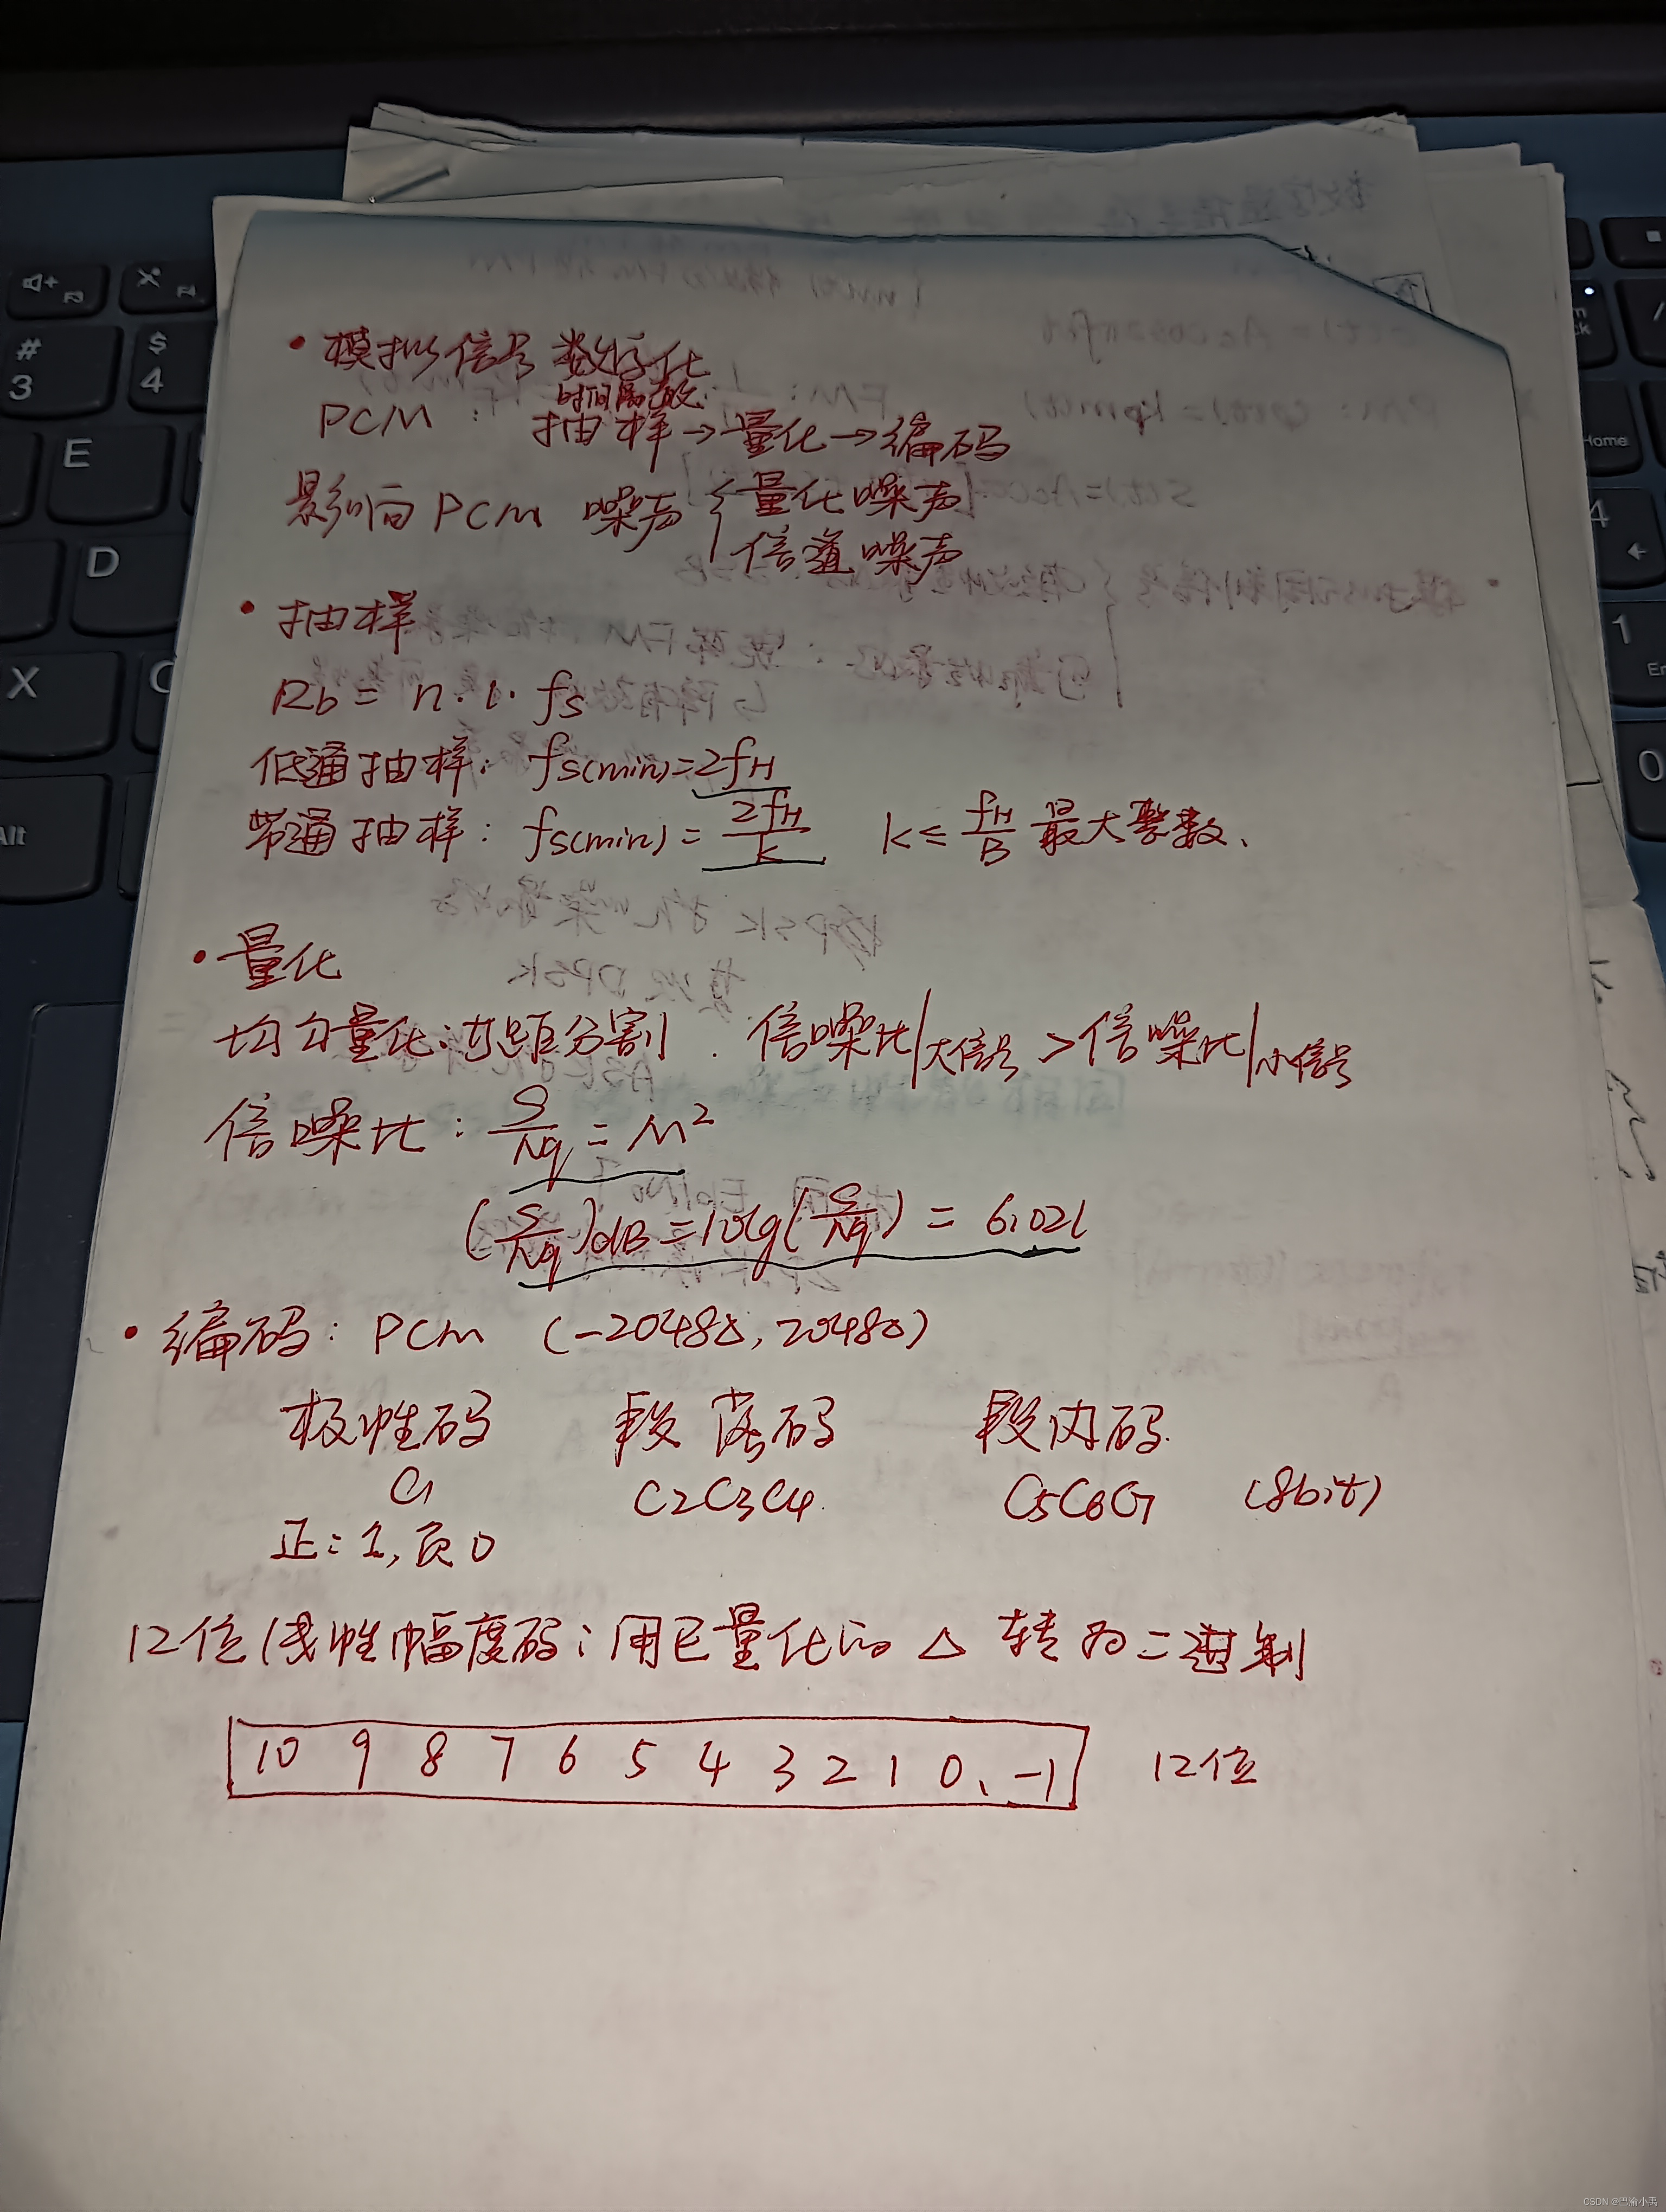 • 模拟信号数字化
时间离散
PCM: 抽样→量化→编码
影响PCM 噪声{量化噪声
信道噪声
• 抽样
Rb = n·l·fs
低通抽样: fs(min)=2fH
带通抽样: fs(min)=2fH/k k≤fH/B 最大整数、
• 量化
均匀量化:等距分割. 信噪比|大信号 > 信噪比|小信号
信噪比: S/Nq = M²
(S/Nq)dB=10lg(S/Nq) = 6.02l
• 编码: PCM (-2048Δ, 2048Δ)
极性码 段落码 段内码
C1 C2C3C4 C5C6C7 (8bit)
正:1,负0
12位线性幅度码:用已量化的 Δ 转为二进制
10 9 8 7 6 5 4 3 2 1 0、-1 12位
# 3
$ 4
E
D
X
Alt
Home
4
1
0
CSDN @巴渝小禹